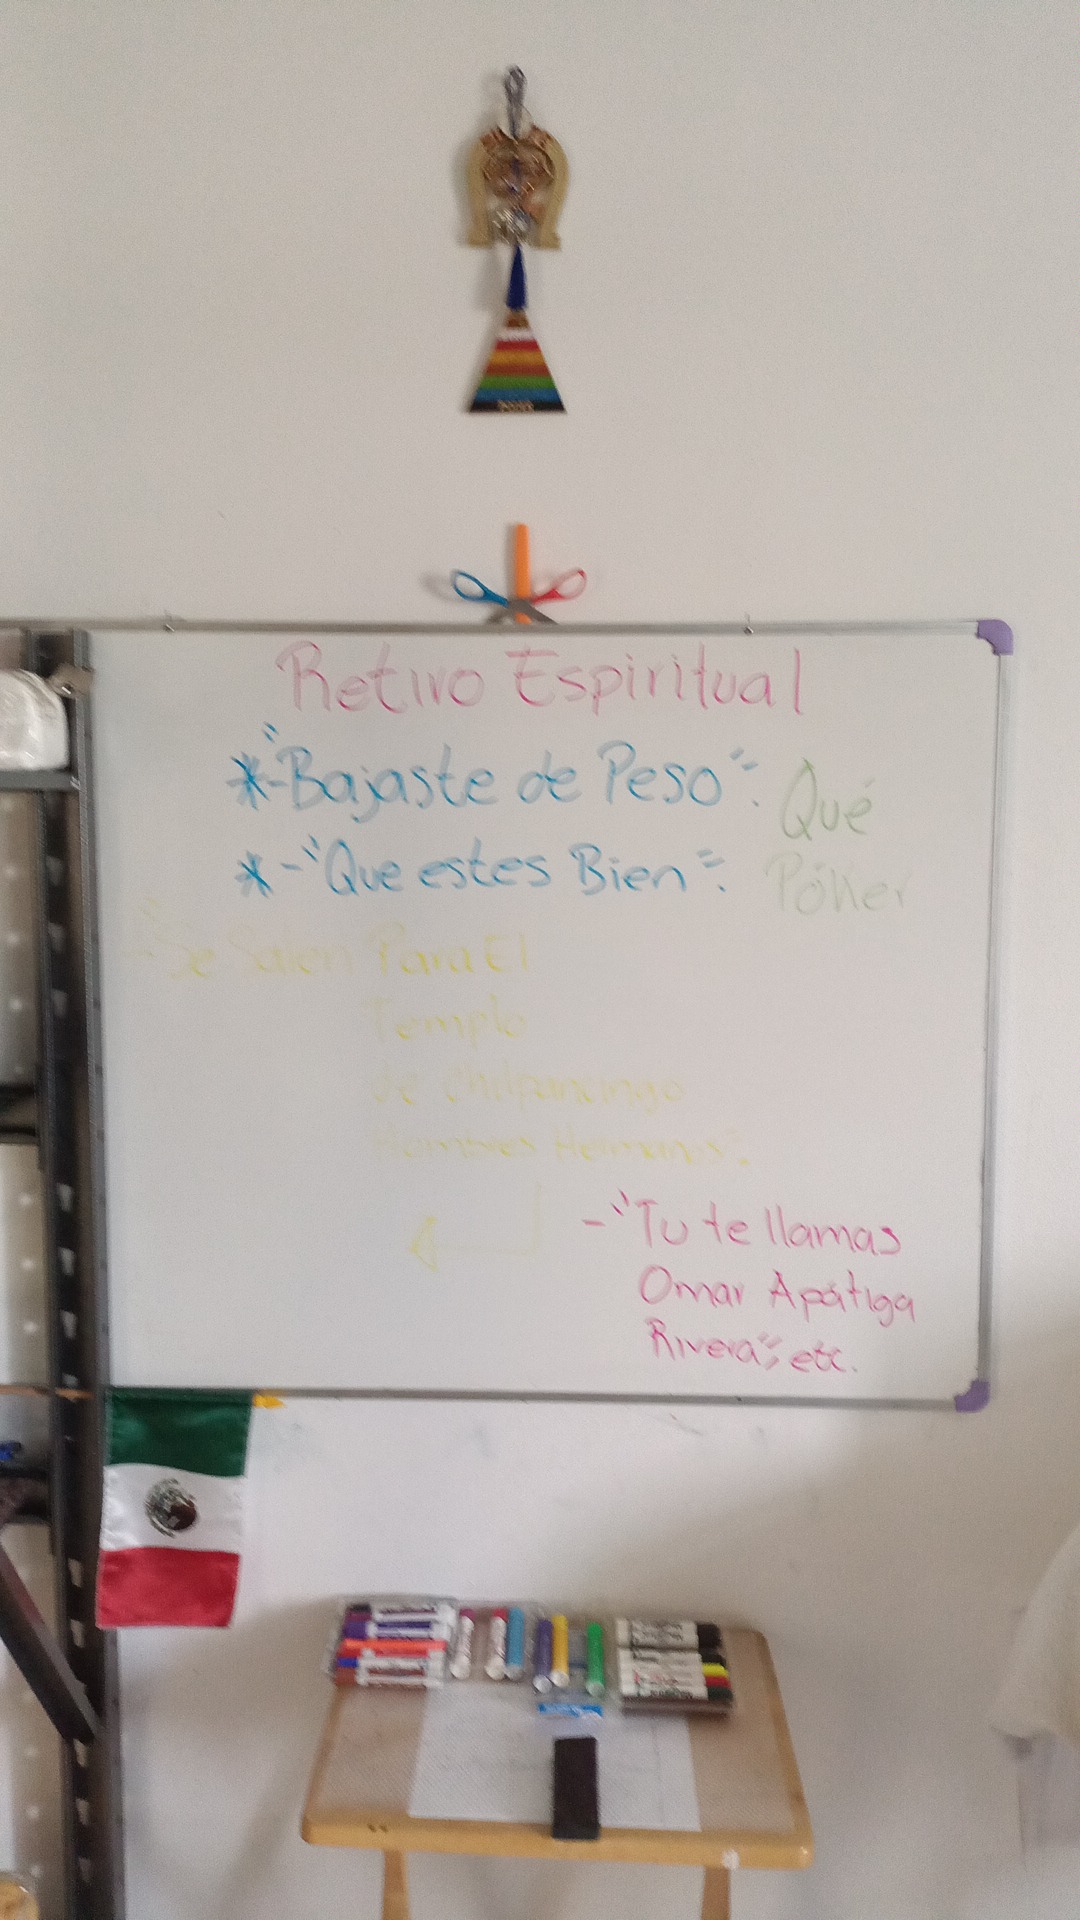 Retiro Espiritual
*-"Bajaste de Peso".
*-"Que estes Bien".
Qué
Póker
-"Se Salen Para El
Templo
de Chilpancingo
Hombres Hermanos.
-"Tu te llamas
Omar Apátiga
Rivera", etc.